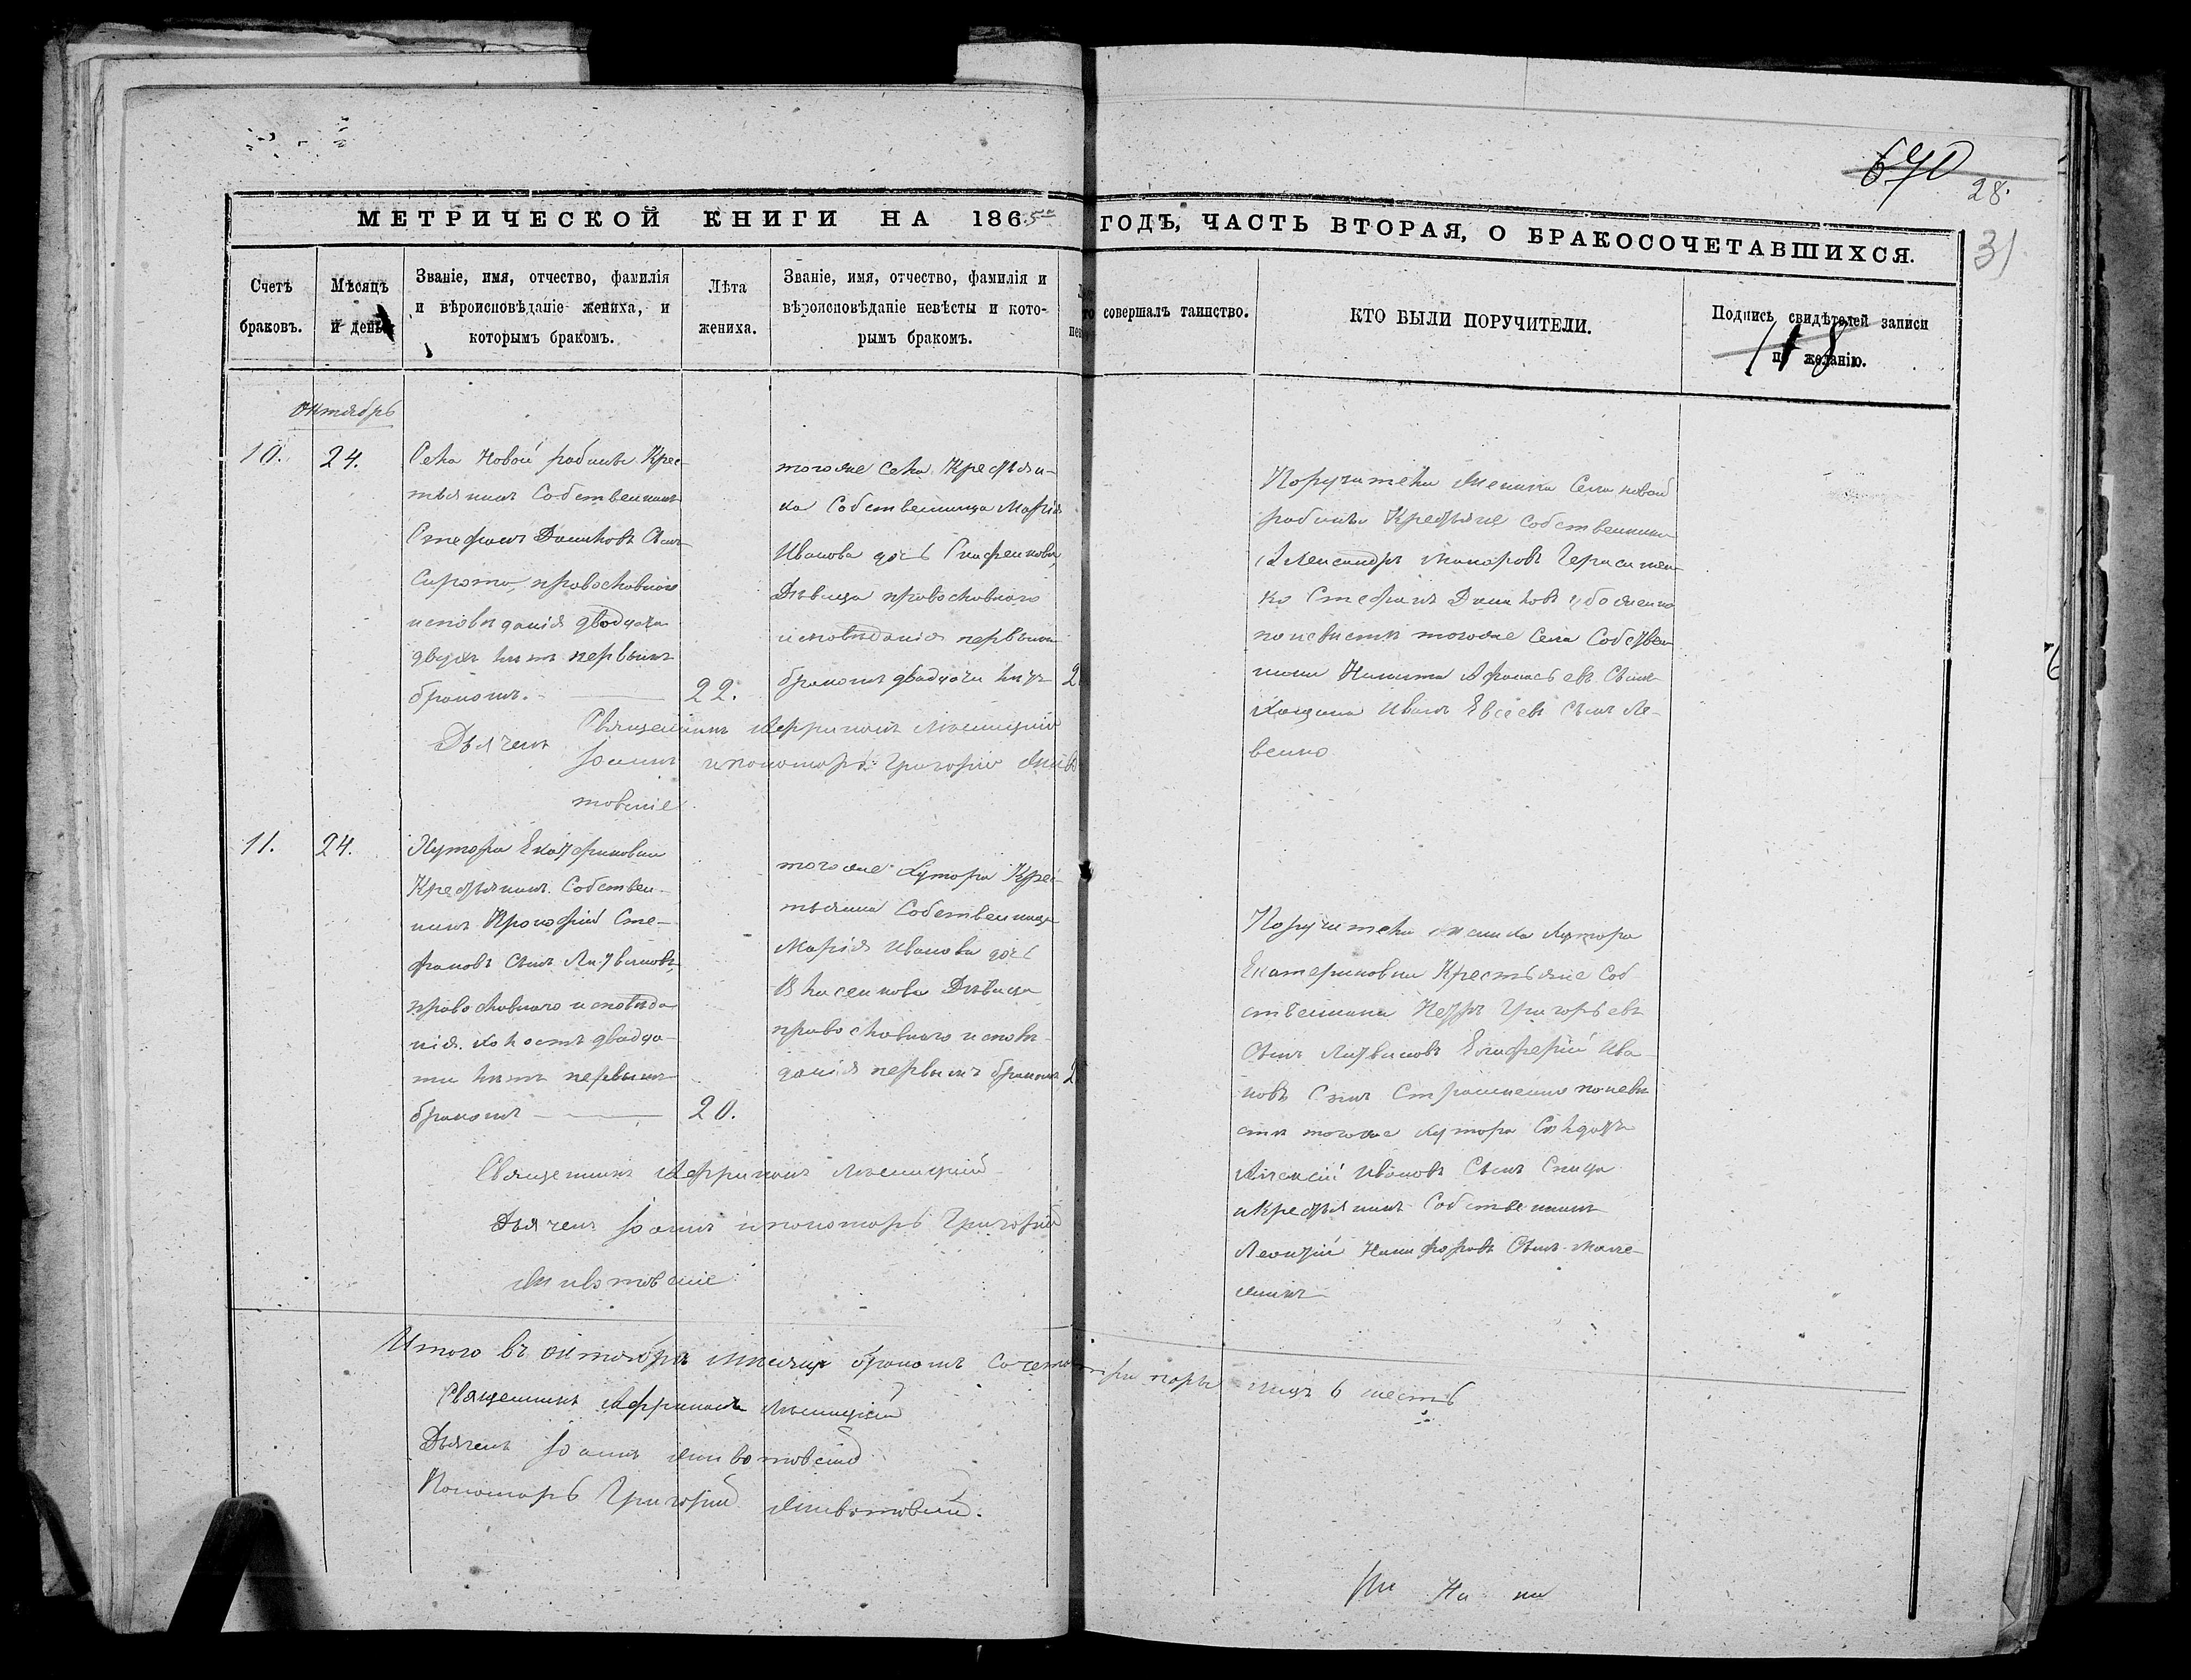 670
28.
31
МЕТРИЧЕСКОЙ КНИГИ НА 1865 ГОДЪ, ЧАСТЬ ВТОРАЯ, О БРАКОСОЧЕТАВШИХСЯ.
Счетъ
браковъ.
Мѣсяцъ
и день
Званіе, имя, отчество, фамилія
и вѣроисповѣданіе жениха, и
которымъ бракомъ.
Лѣта
жениха.
Званіе, имя, отчество, фамилія и
вѣроисповѣданіе невѣсты и кото-
рымъ бракомъ.
совершалъ таинство.
КТО БЫЛИ ПОРУЧИТЕЛИ.
Подпись свидѣтелей записи
по желанію.
октябрь
10.
24.
Села Новой рабины Крес-
тьянинъ Собственникъ
Стефанъ Сынъ
Сирота, православнаго
исповѣданія двадцати
двухъ лѣтъ первымъ
бракомъ. 22.
тогоже села Крестьян-
ка Собственница Марія
Иванова дочь
Дѣвица православнаго
исповѣданія первымъ
бракомъ двадцати лѣтъ 2
Священникъ
Дьячекъ Іоаннъ и пономарь Григорій
Поручители жениха Села новой
рабины Крестьяне Собственники
Александръ Макаровъ Герасимен-
ко Стефанъ
по невѣстѣ тогоже Села Собствен-
ники Никита Афанасьевъ Сынъ
Иванъ Евсѣевъ Сынъ Ле-
венко
11.
24.
Хутора Екатериновки
Крестьянинъ Собствен-
никъ Прокофій Сте-
фановъ Сынъ Литвиновъ,
православнаго исповѣда-
нія холостъ двадца-
ти лѣтъ первымъ
бракомъ 20.
тогоже Хутора Крес-
тьянка Собственница
Марія Иванова дочь
Власенкова Дѣвица
православнаго исповѣ-
данія первымъ бракомъ 2
Священникъ
Дьячекъ Іоаннъ и пономарь Григорій
Животовскіе
Поручители жениха Хутора
Екатериновки Крестьяне Соб-
ственники Петръ Григорьевъ
Сынъ Литвиновъ Елиферій Ива-
новъ Сынъ по невѣ-
стѣ тогоже Хутора Солдатъ
Алексѣй Ивановъ Сынъ Спица
и Крестьянинъ Собственникъ
Леонтій Никифоровъ Сынъ
Итого въ октябрѣ мѣсяцѣ бракомъ три пары лицъ 6 шесть
Священникъ
Дьячекъ Іоаннъ Животовскій
Пономарь Григорій Животовскій.